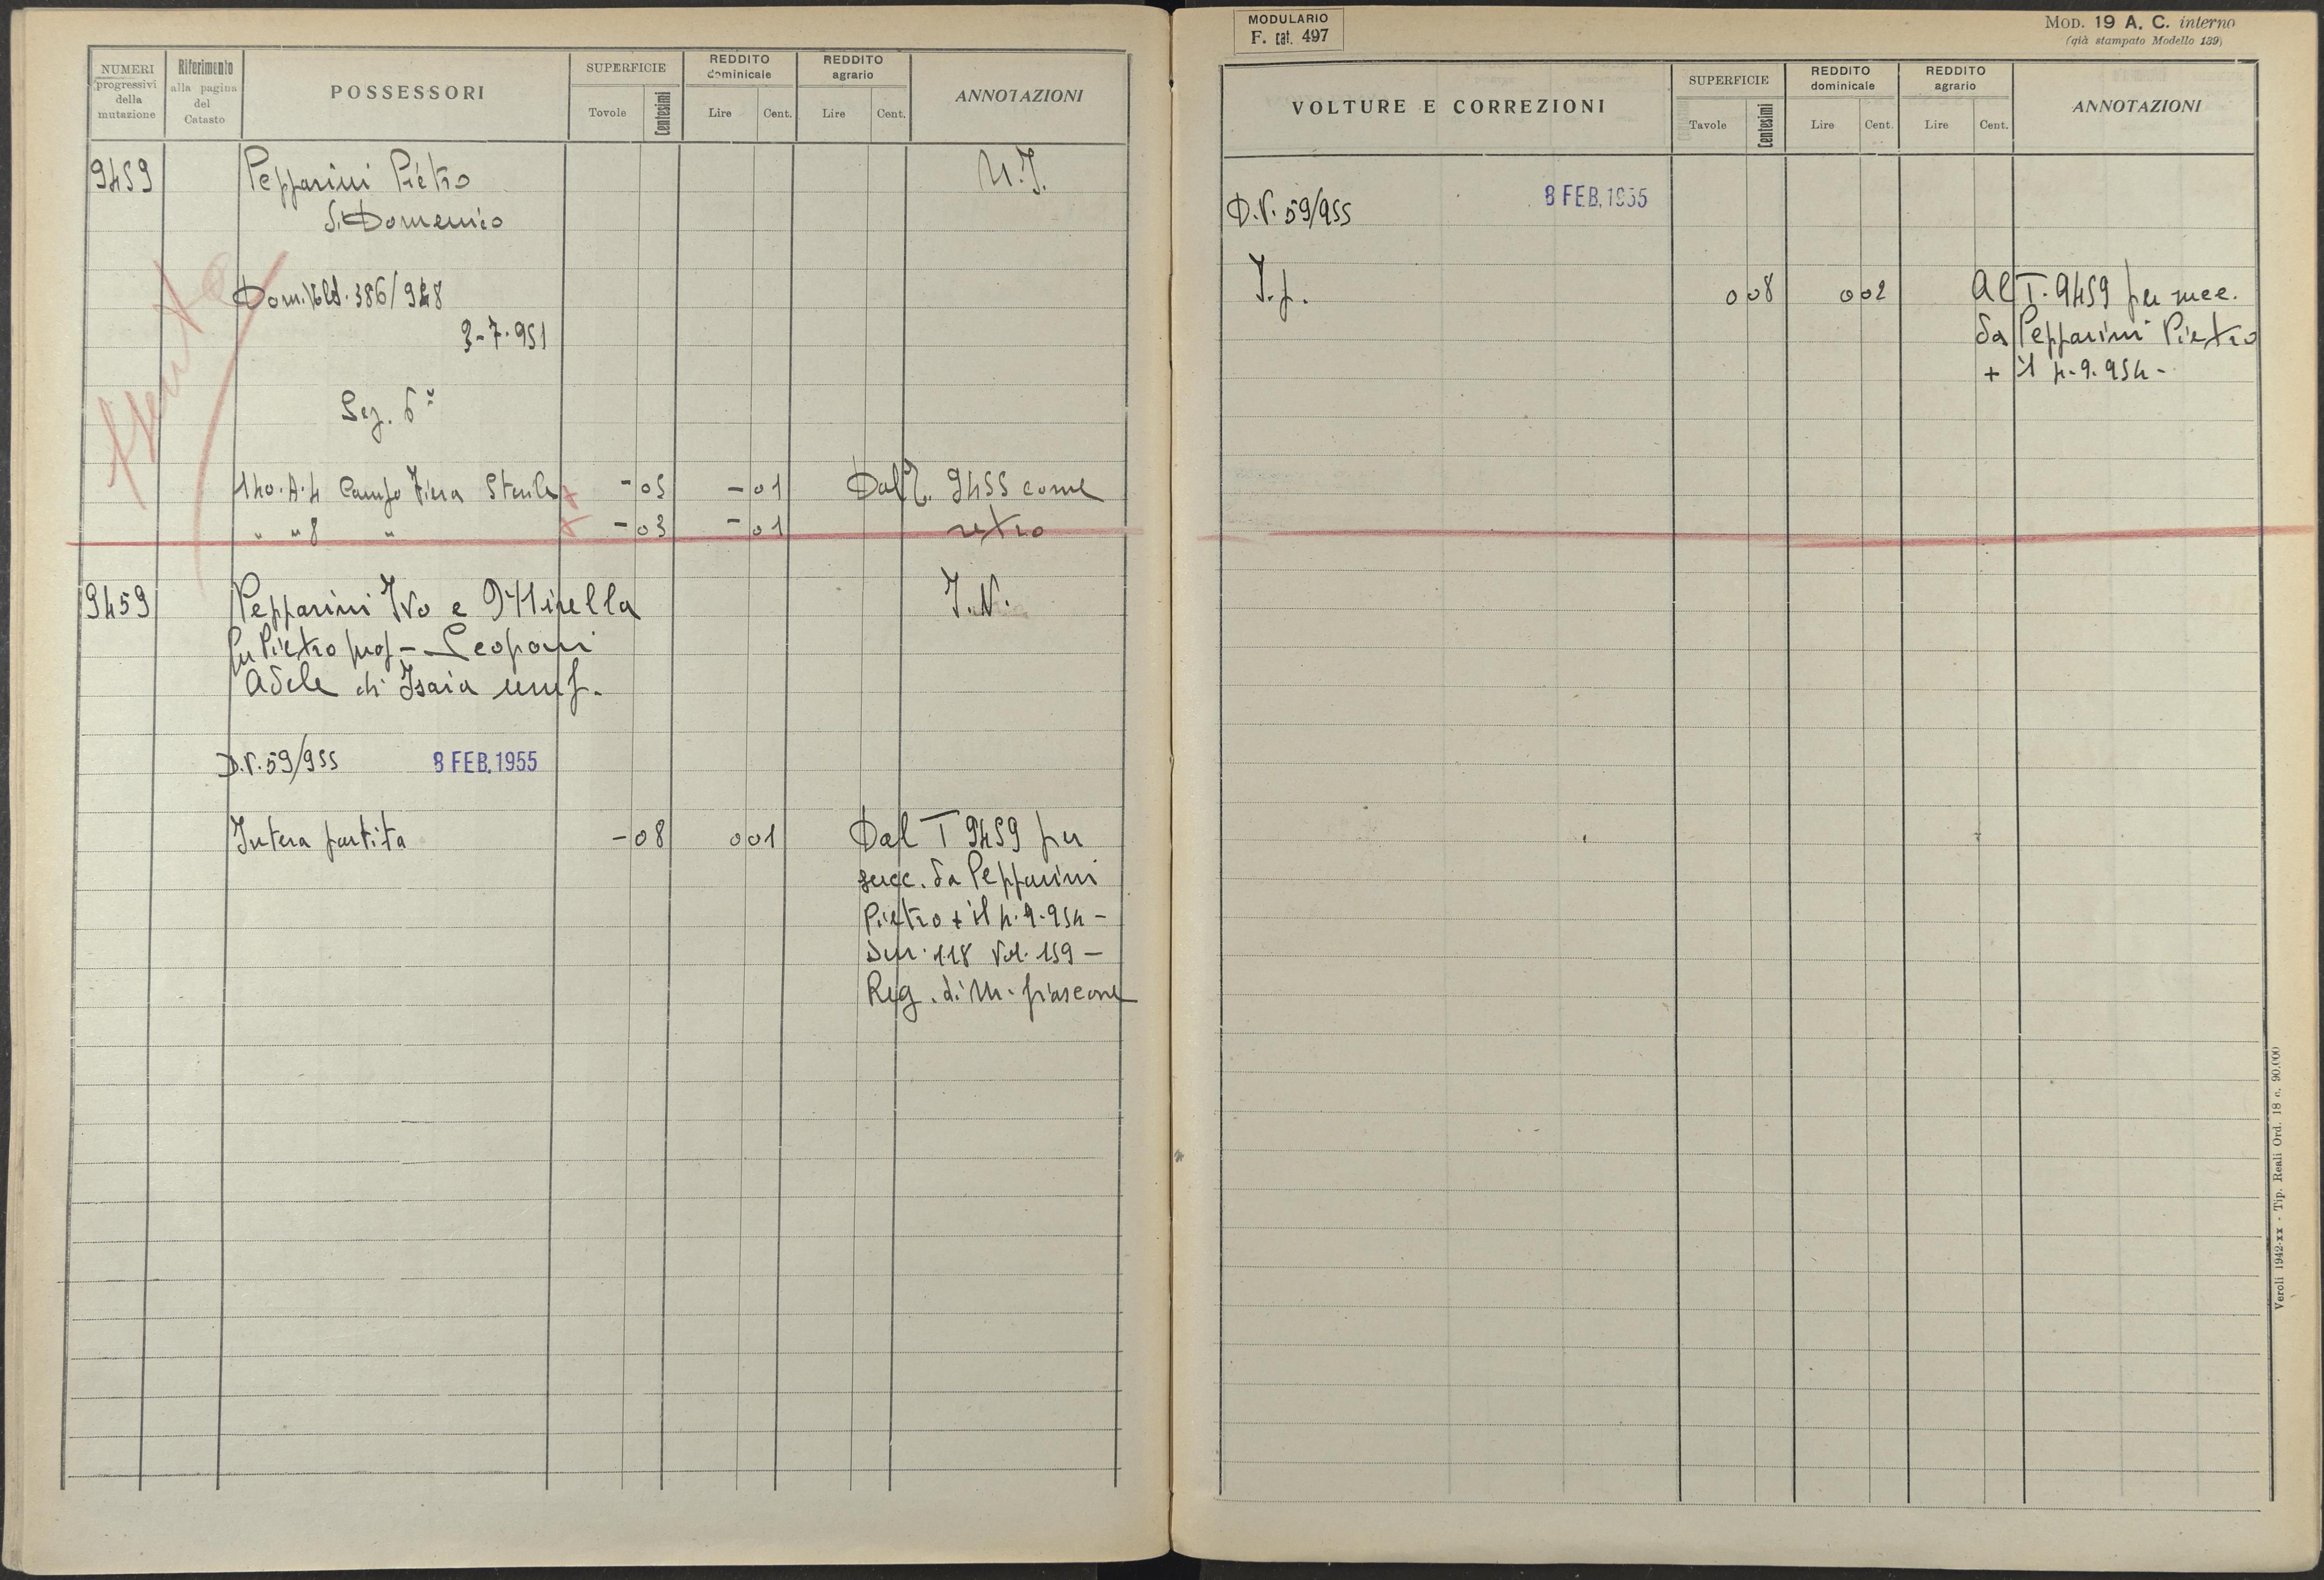 NUMERI
progressivi
della
mutazione
Riferimento
alla pagina
del
Catasto
POSSESSORI
SUPERFICIE
Tovole
Centesimi
REDDITO
dominicale
Lire
Cent.
REDDITO
agrario
Lire
Cent.
ANNOTAZIONI
9459
Pepparini Pietro
di Domenico
3-7-951
Sez. 6ª
140.A.4 Campo Fiera Sterile -05 -01 Dal T. 9455 come
" " 8 " -03 -01 retro
9459
Pepparini Ivo e Mirella
fu Pietro prop - Leoponi
Adele di Isaia usuf.
I.N.
D.V. 59/955 8 FEB. 1955
Intera partita -08 001 Dal T 9459 per
succ. da Pepparini
Pietro + il 4.9.954 -
Den. 118 Vol. 159 -
Reg. di M. fiascone
MODULARIO
F. cat. 497
MOD. 19 A. C. interno
(già stampato Modello 139)
VOLTURE E CORREZIONI
SUPERFICIE
Tavole
Centesimi
REDDITO
dominicale
Lire
Cent.
REDDITO
agrario
Lire
Cent.
ANNOTAZIONI
D.V. 59/955 8 FEB. 1955
I.p. 0 08 0 02 Al T. 9459 per succ.
da Pepparini Pietro
+ il 4.9.954 -
Veroli 1942-XX - Tip. Reali Ord. 18 c. 90.000